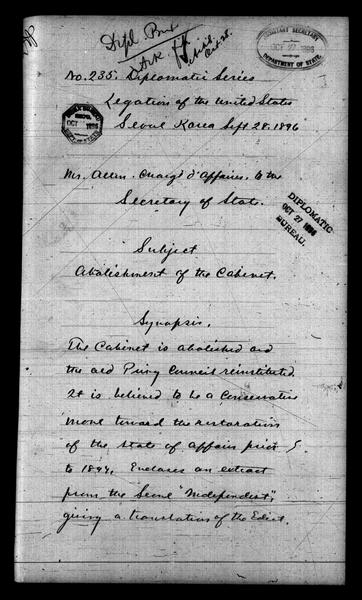 Dipl Bur
No. 235. Diplomatic Series
Legation of the United States
Seoul Korea Sept 28, 1896
ASSISTANT SECRETARY
OCT 27 1896
DEPARTMENT OF STATE
OCT 1896
DEPT. OF STATE
Mr. Allen. Chargé d'Affaires, to the
Secretary of State.
DIPLOMATIC
OCT 27 1896
BUREAU.
Subject
Abolishment of the Cabinet.
Synopsis.
The Cabinet is abolished and
the old Privy Council reinstituted.
It is believed to be a conservative
move toward the restoration
of the state of affairs prior
to 1894. Encloses an extract
from the Seoul "Independent",
giving a translation of the Edict.